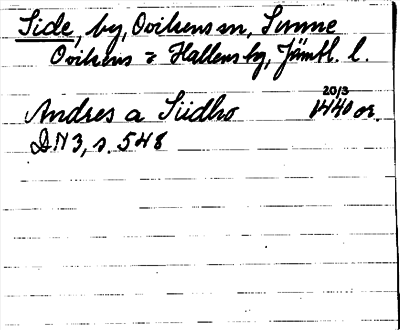 Side, by, Ovikens sn, Sunne
Ovikens o Hallens tg, Jämtl. l.
Andres a Siidho 20/3 1440 or.
DN 3, s. 548